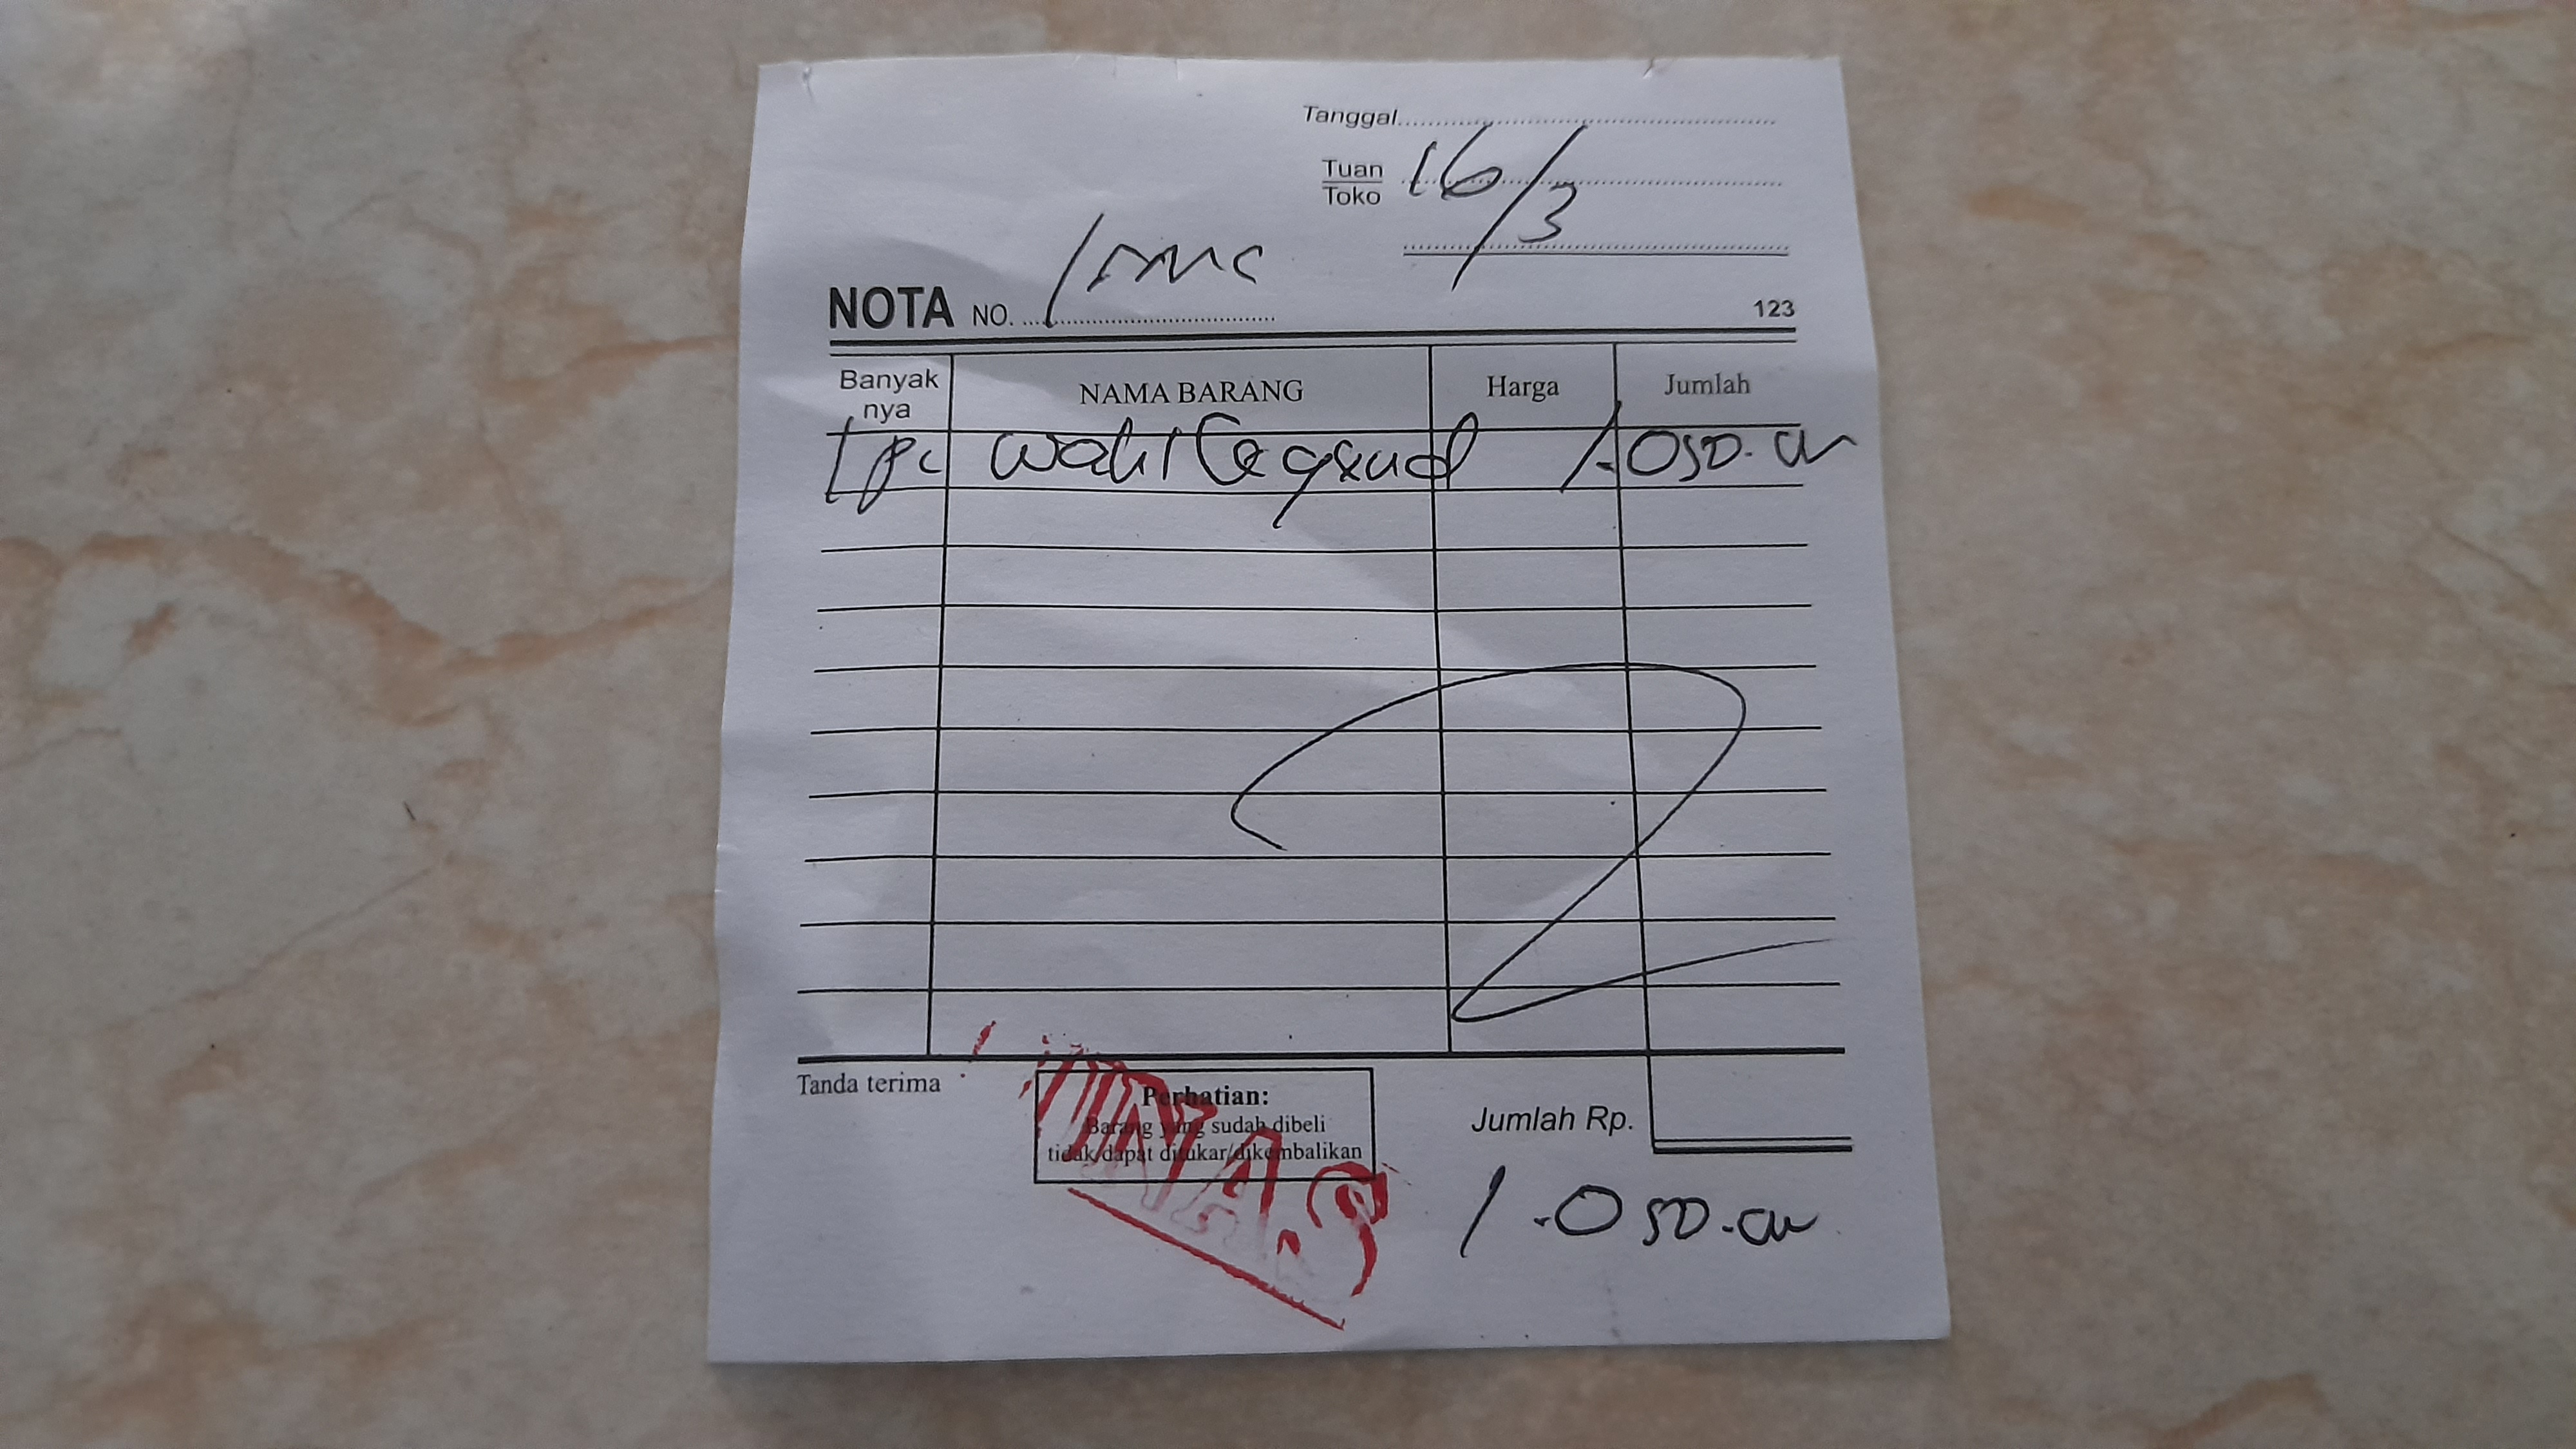 Tanggal
16/3
Tuan
Toko
NOTA NO.
123
Banyak nya NAMA BARANG Harga Jumlah
1 pc Wahl 1.050.000
Tanda terima
Perhatian:
Barang yang sudah dibeli
tidak dapat ditukar/dikembalikan
LUNAS
Jumlah Rp.
1.050.000